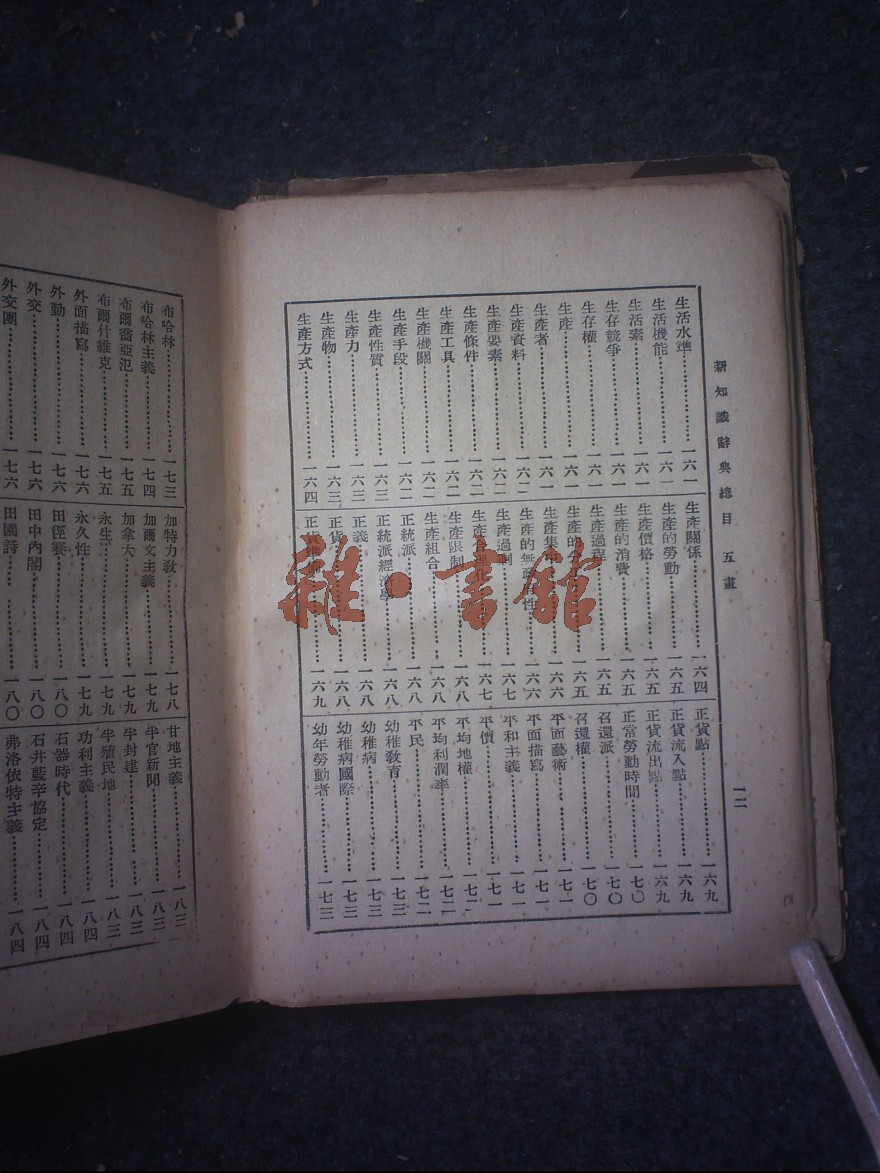 新知識辭典總目 五畫
一二
生活水準……一六一
生活機能……一六一
生活素……一六一
生存競爭……一六一
生存權……一六一
生產……一六一
生產者……一六一
生產資料……一六二
生產要素……一六二
生產條件……一六二
生產工具……一六二
生產機關……一六二
生產手段……一六二
生產性質……一六三
生產力……一六三
生產物……一六三
生產方式……一六四
生產關係……一六四
生產的勞動……一六五
生產價格……一六五
生產的消費……一六五
生產過程……一六五
生產的……一六五
生產集中……一六六
生產的無政府性……一六六
生產過剩……一六七
生產合理化……一六七
生產限制……一六八
生產組合……一六八
正統派……一六八
正統派經濟學……一六八
正義……一六八
正貨……一六八
正貨準備……一六九
正貨點……一六九
正貨流入點……一六九
正貨流出點……一六九
正常勞動時間……一七〇
召還派……一七〇
召還權……一七〇
平面藝術……一七一
平面描寫……一七一
平和主義……一七一
平價……一七一
平均地權……一七二
平均利潤率……一七二
平民……一七二
幼稚教育……一七三
幼稚病……一七三
幼稚病國際……一七三
幼年勞動者……一七三
布哈林……一七三
布哈林主義……一七四
布爾喬亞氾……一七五
布爾什維克……一七五
外面描寫……一七六
外勤……一七六
外交……一七六
外交團……一七六
加特力教……一七八
加爾文主義……一七九
加拿大……一七九
永生……一七九
永久性……一七九
田徑賽……一八〇
田中內閣……一八〇
田園詩……一八〇
甘地主義……一八三
半官新聞……一八三
半封建……一八三
半殖民地……一八三
功利主義……一八四
石器時代……一八四
石井藍辛協定……一八四
弗洛依特主義……一八四
雜·書館